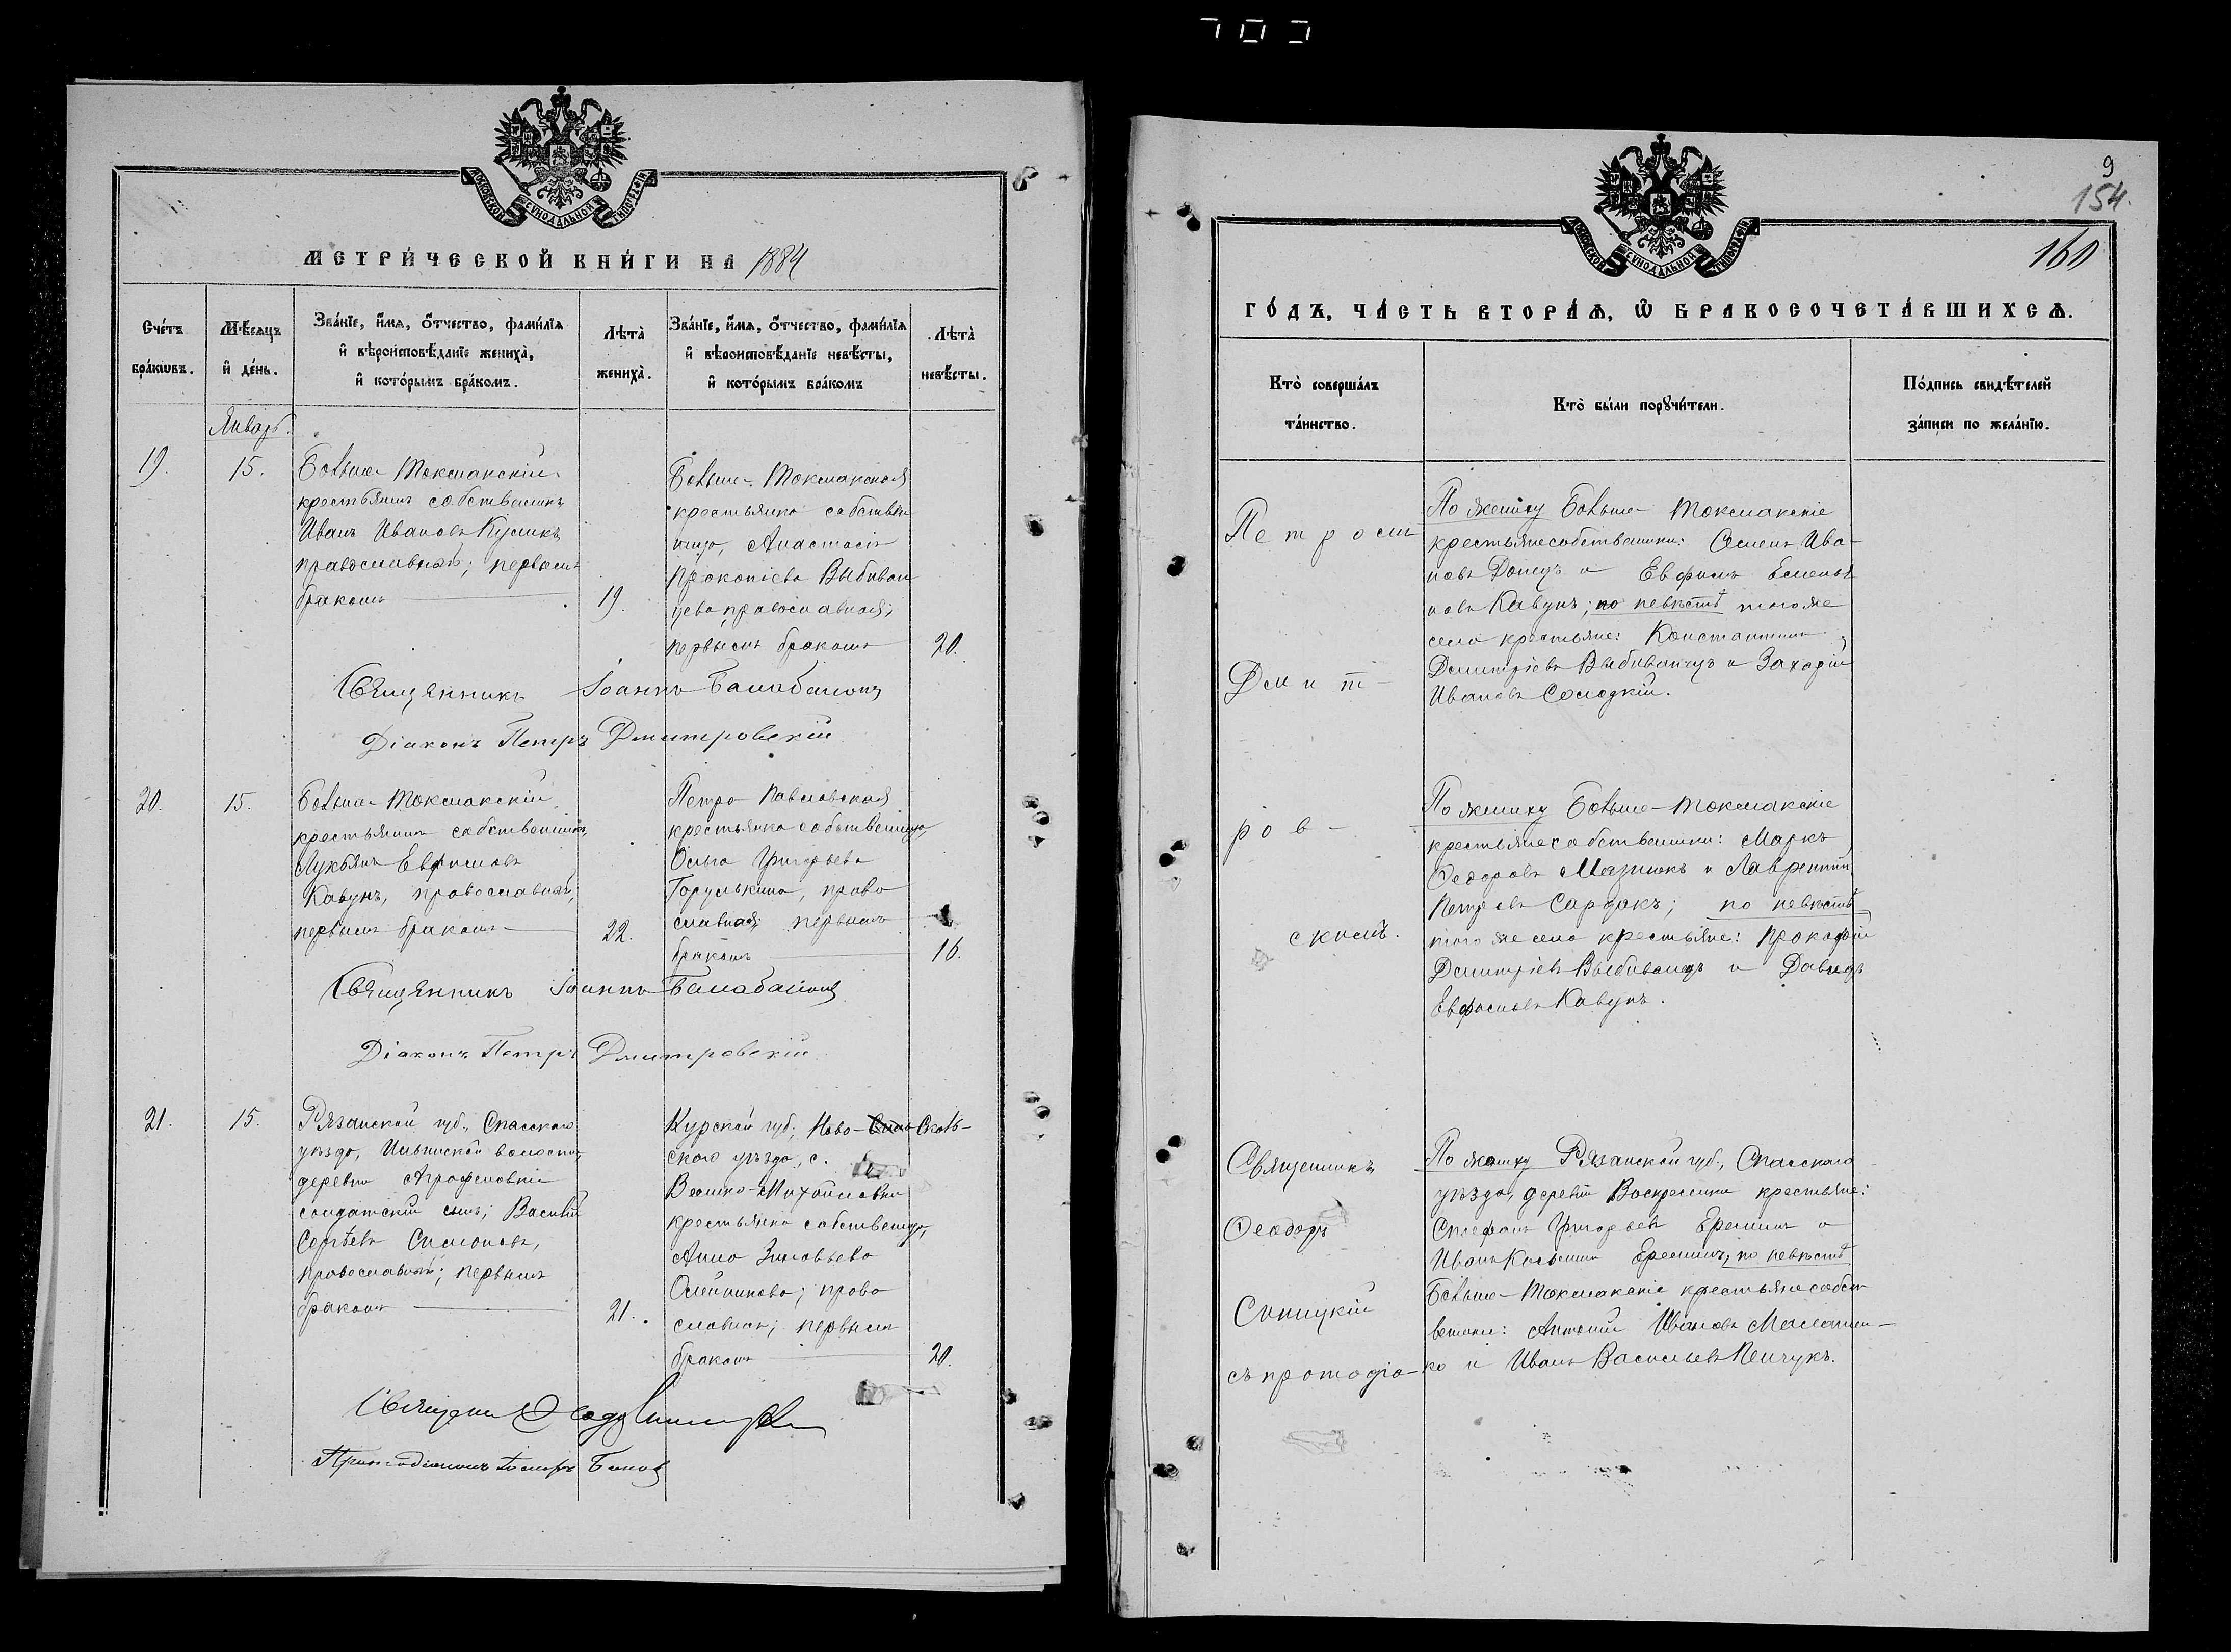 МОСКОВСКОЙ СѴНОДАЛЬНОЙ ТИПОГРАФІИ
МЕТРИ́ЧЕСКОЙ КНИ́ГИ НА 1884
Сче́тъ бра́кѡвъ.
Мѣ́сяцъ и҆ де́нь.
Зва́нїе, и҆́мѧ, ѻ҆́тчество, фами́лїѧ и҆ вѣроисповѣ́данїе жениха̀, и҆ кото́рымъ бра́комъ.
Лѣ́та̀ жениха̀.
Зва́нїе, и҆́мѧ, ѻ҆́тчество, фами́лїѧ и҆ вѣроисповѣ́данїе невѣ́сты, и҆ кото́рымъ бра́комъ
Лѣ́та̀ невѣ́сты.
Январь.
19.
15.
Больше-Токмакскій
крестьянинъ собственникъ
Иванъ Ивановъ Кусикъ
православный; первымъ
бракомъ
19.
Больше-Токмакская
крестьянка собствен
ница, Анастасія
Прокопіева Выбиван
цева православная;
первымъ бракомъ
20.
Священникъ Іоаннъ Балабановъ
Діаконъ Петръ Дмитровскій
20.
15.
Больше-Токмакскій
крестьянинъ собственникъ,
Лукьянъ Евфимовъ
Кавунъ, православный;
первымъ бракомъ
22.
Петро Павловская
крестьянка собственница,
Ольга Григорьева
Горулькина, право
славная; первымъ
бракомъ
16.
Священникъ Іоаннъ Балабановъ
Діаконъ Петръ Дмитровскій
21.
15.
Рязанской губ., Спасскаго
уѣзда, Ильинской волости,
деревни Аграфеновки
солдатскій сынъ; Василій
Сергѣевъ Симоновъ,
православный; первымъ
бракомъ
21.
Курской губ; Ново-Скольскаго
уѣзда, с.
Велико-Михайловки
крестьянка собственница,
Анна Зиновьева
Олейникова; право
славная; первымъ
бракомъ
20.
Протодіаконъ
9
154.
160
МОСКОВСКОЙ СѴНОДАЛЬНОЙ ТИПОГРАФІИ
ГО́ДЪ, ЧА́СТЬ ВТОРА́Ѧ, Ѡ҆ БРАКОСОЧЕТА́ВШИХСѦ.
Кто̀ соверша́лъ та́инство.
Кто̀ бы́ли порꙋчи́тели.
По́дпись свидѣ́телей за́писи по жела́нїю.
Петромъ
Дмит-
ров-
скимъ.
По жениху Больше-Токмакскіе
крестьяне собственники: Семенъ Ива-
новъ Донецъ и Евфимъ Семено
новъ Кавунъ; по невѣстѣ того же
села крестьяне: Константинъ
Дмитріевъ Выбиванецъ и Захарій
Ивановъ Солодкій.
По жениху Больше-Токмакскіе
крестьяне собственники: Маркъ
Ѳедоровъ Мазнюкъ и Лаврентій
Петровъ Сардакъ; по невѣстѣ
того же села крестьяне: Прокофій
Дмитріевъ Выбиванецъ и Давидъ
Евфимовъ Кавунъ.
Священникъ
Ѳеодоръ
Синицкій
съ протодіа-
По жениху Рязанской губ., Спасскаго
уѣзда, деревни Воскресенки крестьяне:
Стефанъ Григорьевъ Ереминъ и
Иванъ Козьминъ Ереминъ, по невѣстѣ
Больше-Токмакскіе крестьяне собст
венники: Антоній Ивановъ Маланчен-
ко и Иванъ Васильевъ Пенчукъ.